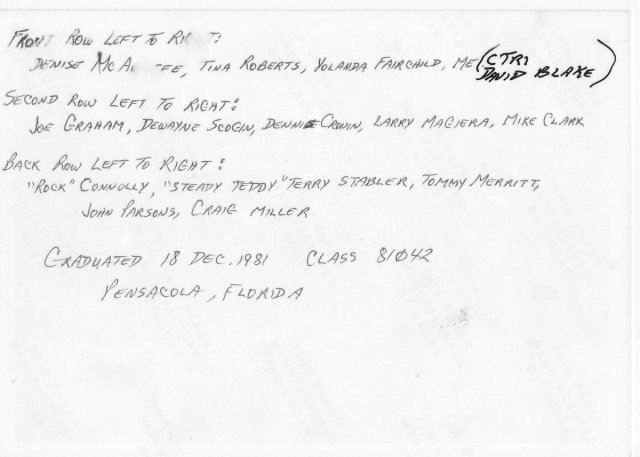 FRONT ROW LEFT TO RIGHT:
DENISE TINA ROBERTS, YOLANDA FAIRCHILD, ME (CTR1
DAVID BLAKE)
SECOND ROW LEFT TO RIGHT:
JOE GRAHAM, DEWAYNE SCOGIN, DENNISE CRONIN, LARRY MAGIERA, MIKE CLARK
BACK ROW LEFT TO RIGHT:
"ROCK" CONNOLLY, "STEADY TEDDY" TERRY STABLER, TOMMY MERRITT,
JOHN PARSONS, CRAIG MILLER
GRADUATED 18 DEC. 1981 CLASS 81Ø42
PENSACOLA, FLORIDA